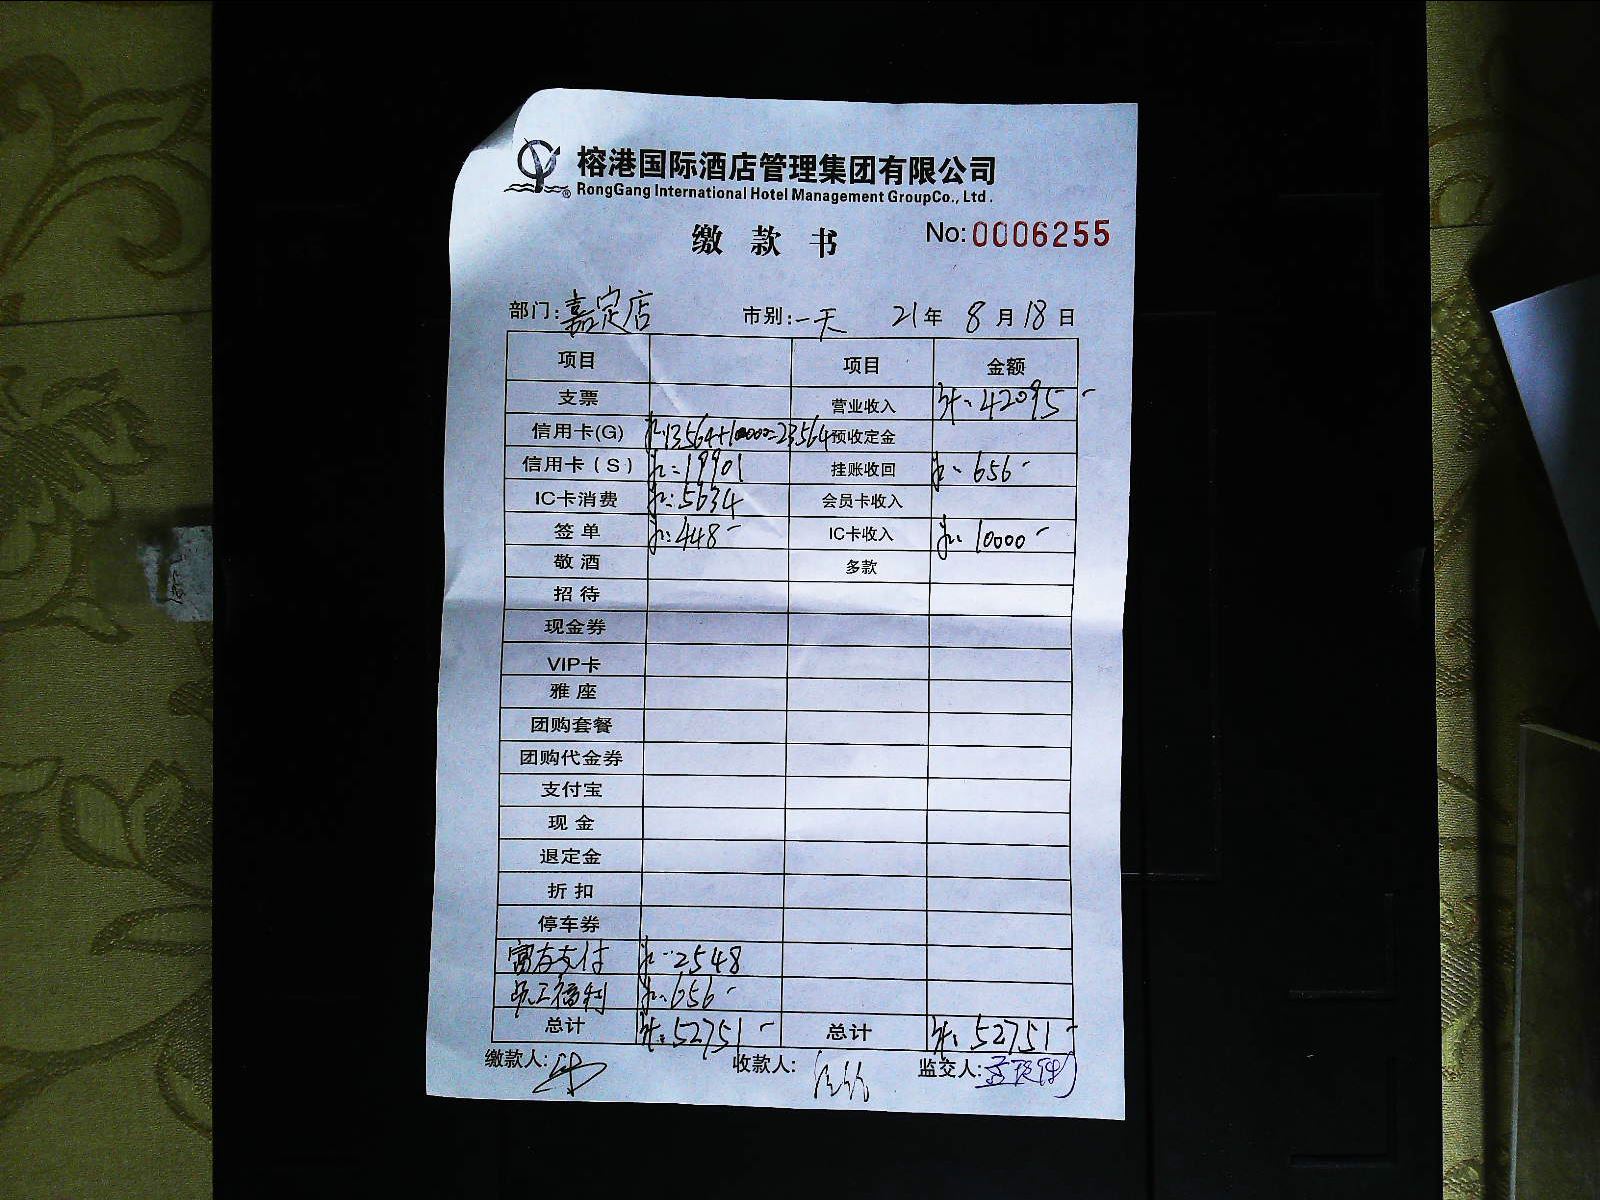 榕港国际酒店管理集团有限公司
RongGang International Hotel Management GroupCo., Ltd.
缴款书 No:0006255
部门:嘉定店 市别:一天 21年8月18日
项目 项目 金额
支票 营业收入 ¥:42095-
信用卡(G) ¥:13564+10000=23564 预收定金
信用卡(S) ¥:19901 挂账收回 ¥:656-
IC卡消费 ¥:5634 会员卡收入
签单 ¥:448- IC卡收入 ¥:10000-
敬酒 多款
招待
现金券
VIP卡
雅座
团购套餐
团购代金券
支付宝
现金
退定金
折扣
停车券
富友支付 ¥:2548
员工福利 ¥:656-
总计 ¥:52751- 总计 ¥:52751-
缴款人: 收款人: 监交人: